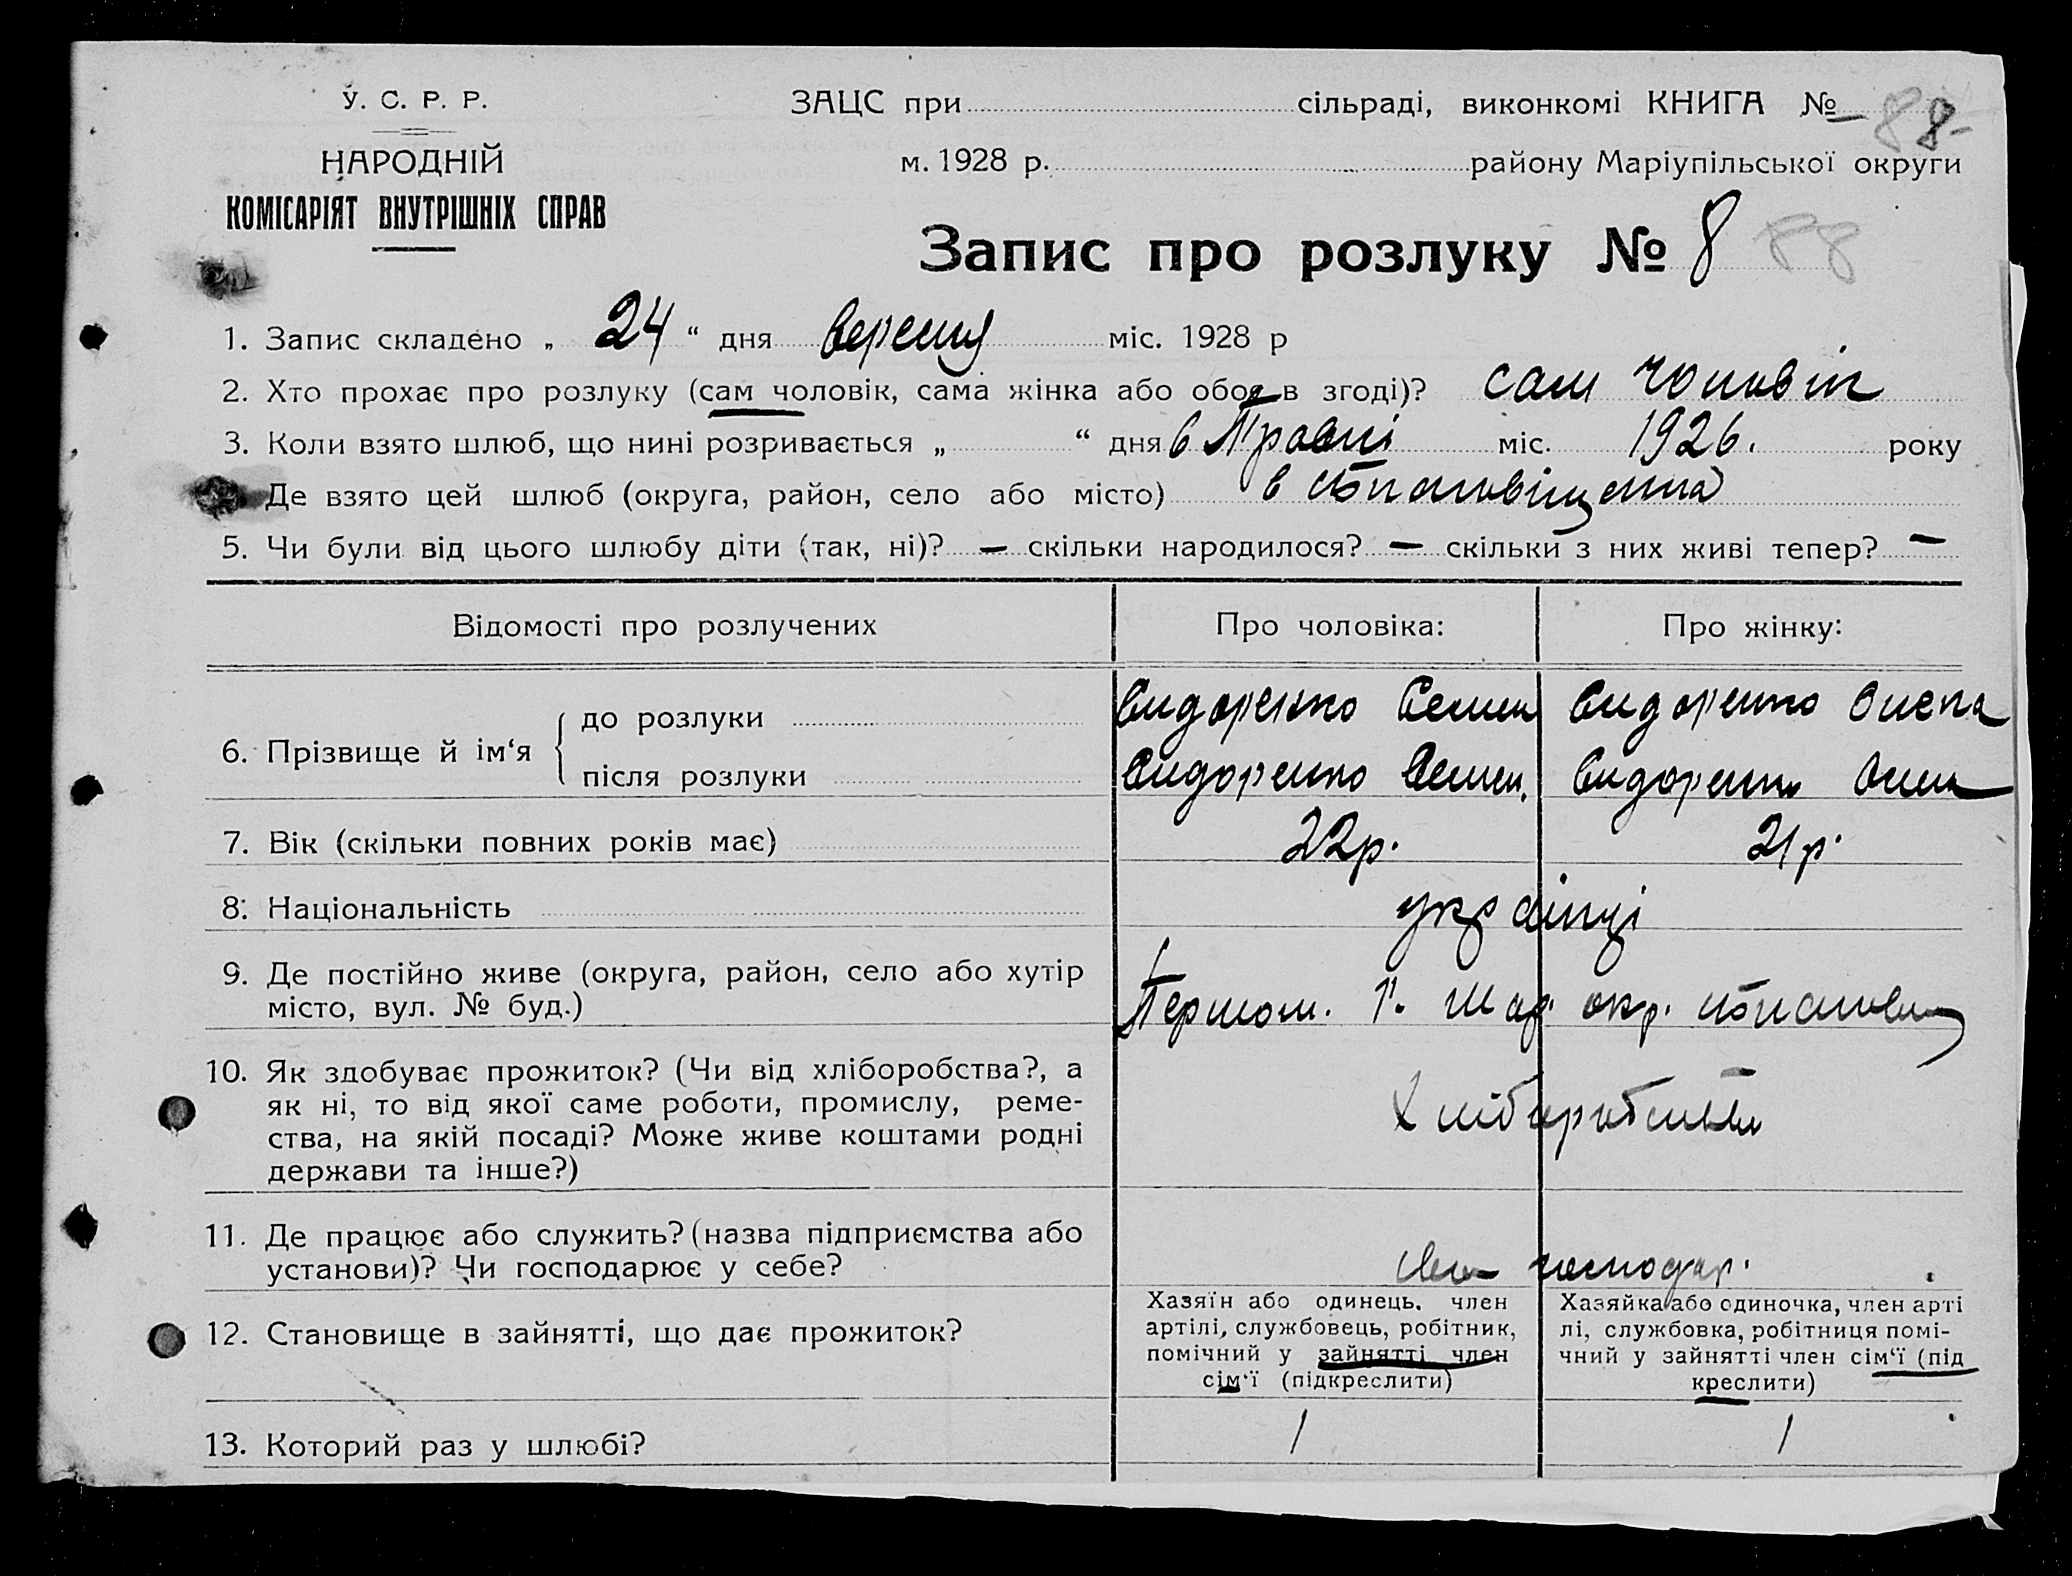 У. С. Р. Р.
НАРОДНІЙ
КОМІСАРІЯТ ВНУТРІШНІХ СПРАВ
ЗАЦС при сільраді, виконкомі КНИГА № 88
м. 1928 р. району Маріупільської округи
Запис про розлуку № 8 88
1. Запис складено „ 24 “ дня вересня міс. 1928 р
2. Хто прохає про розлуку (сам чоловік, сама жінка або обоє в згоді)? сам чоловік
3. Коли взято шлюб, що нині розривається „ “ дня в Травні міс. 1926. року
Де взято цей шлюб (округа, район, село або місто) в
5. Чи були від цього шлюбу діти (так, ні)? — скільки народилося? — скільки з них живі тепер? —
Відомості про розлучених Про чоловіка: Про жінку:
6. Прізвище й ім‘я
до розлуки Сидоренко Семен Сидоренко
після розлуки Сидоренко Семен. Сидоренко
7. Вік (скільки повних років має) 22р. 21р.
8. Національність українці
9. Де постійно живе (округа, район, село або хутір
місто, вул. № буд.) Першом. р. Мар. окр.
10. Як здобуває прожиток? (Чи від хліборобства?, а
як ні, то від якої саме роботи, промислу, реме-
ства, на якій посаді? Може живе коштами родні
держави та інше?)
Хліборобством
11. Де працює або служить? (назва підприємства або
установи)? Чи господарює у себе?
господар.
12. Становище в зайнятті, що дає прожиток?
Хазяїн або одинець, член
артілі, службовець, робітник,
помічний у зайнятті член
сім‘ї (підкреслити)
Хазяйка або одиночка, член арті
лі, службовка, робітниця помі-
чний у зайнятті член сім‘ї (під
креслити)
13. Которий раз у шлюбі? 1 1